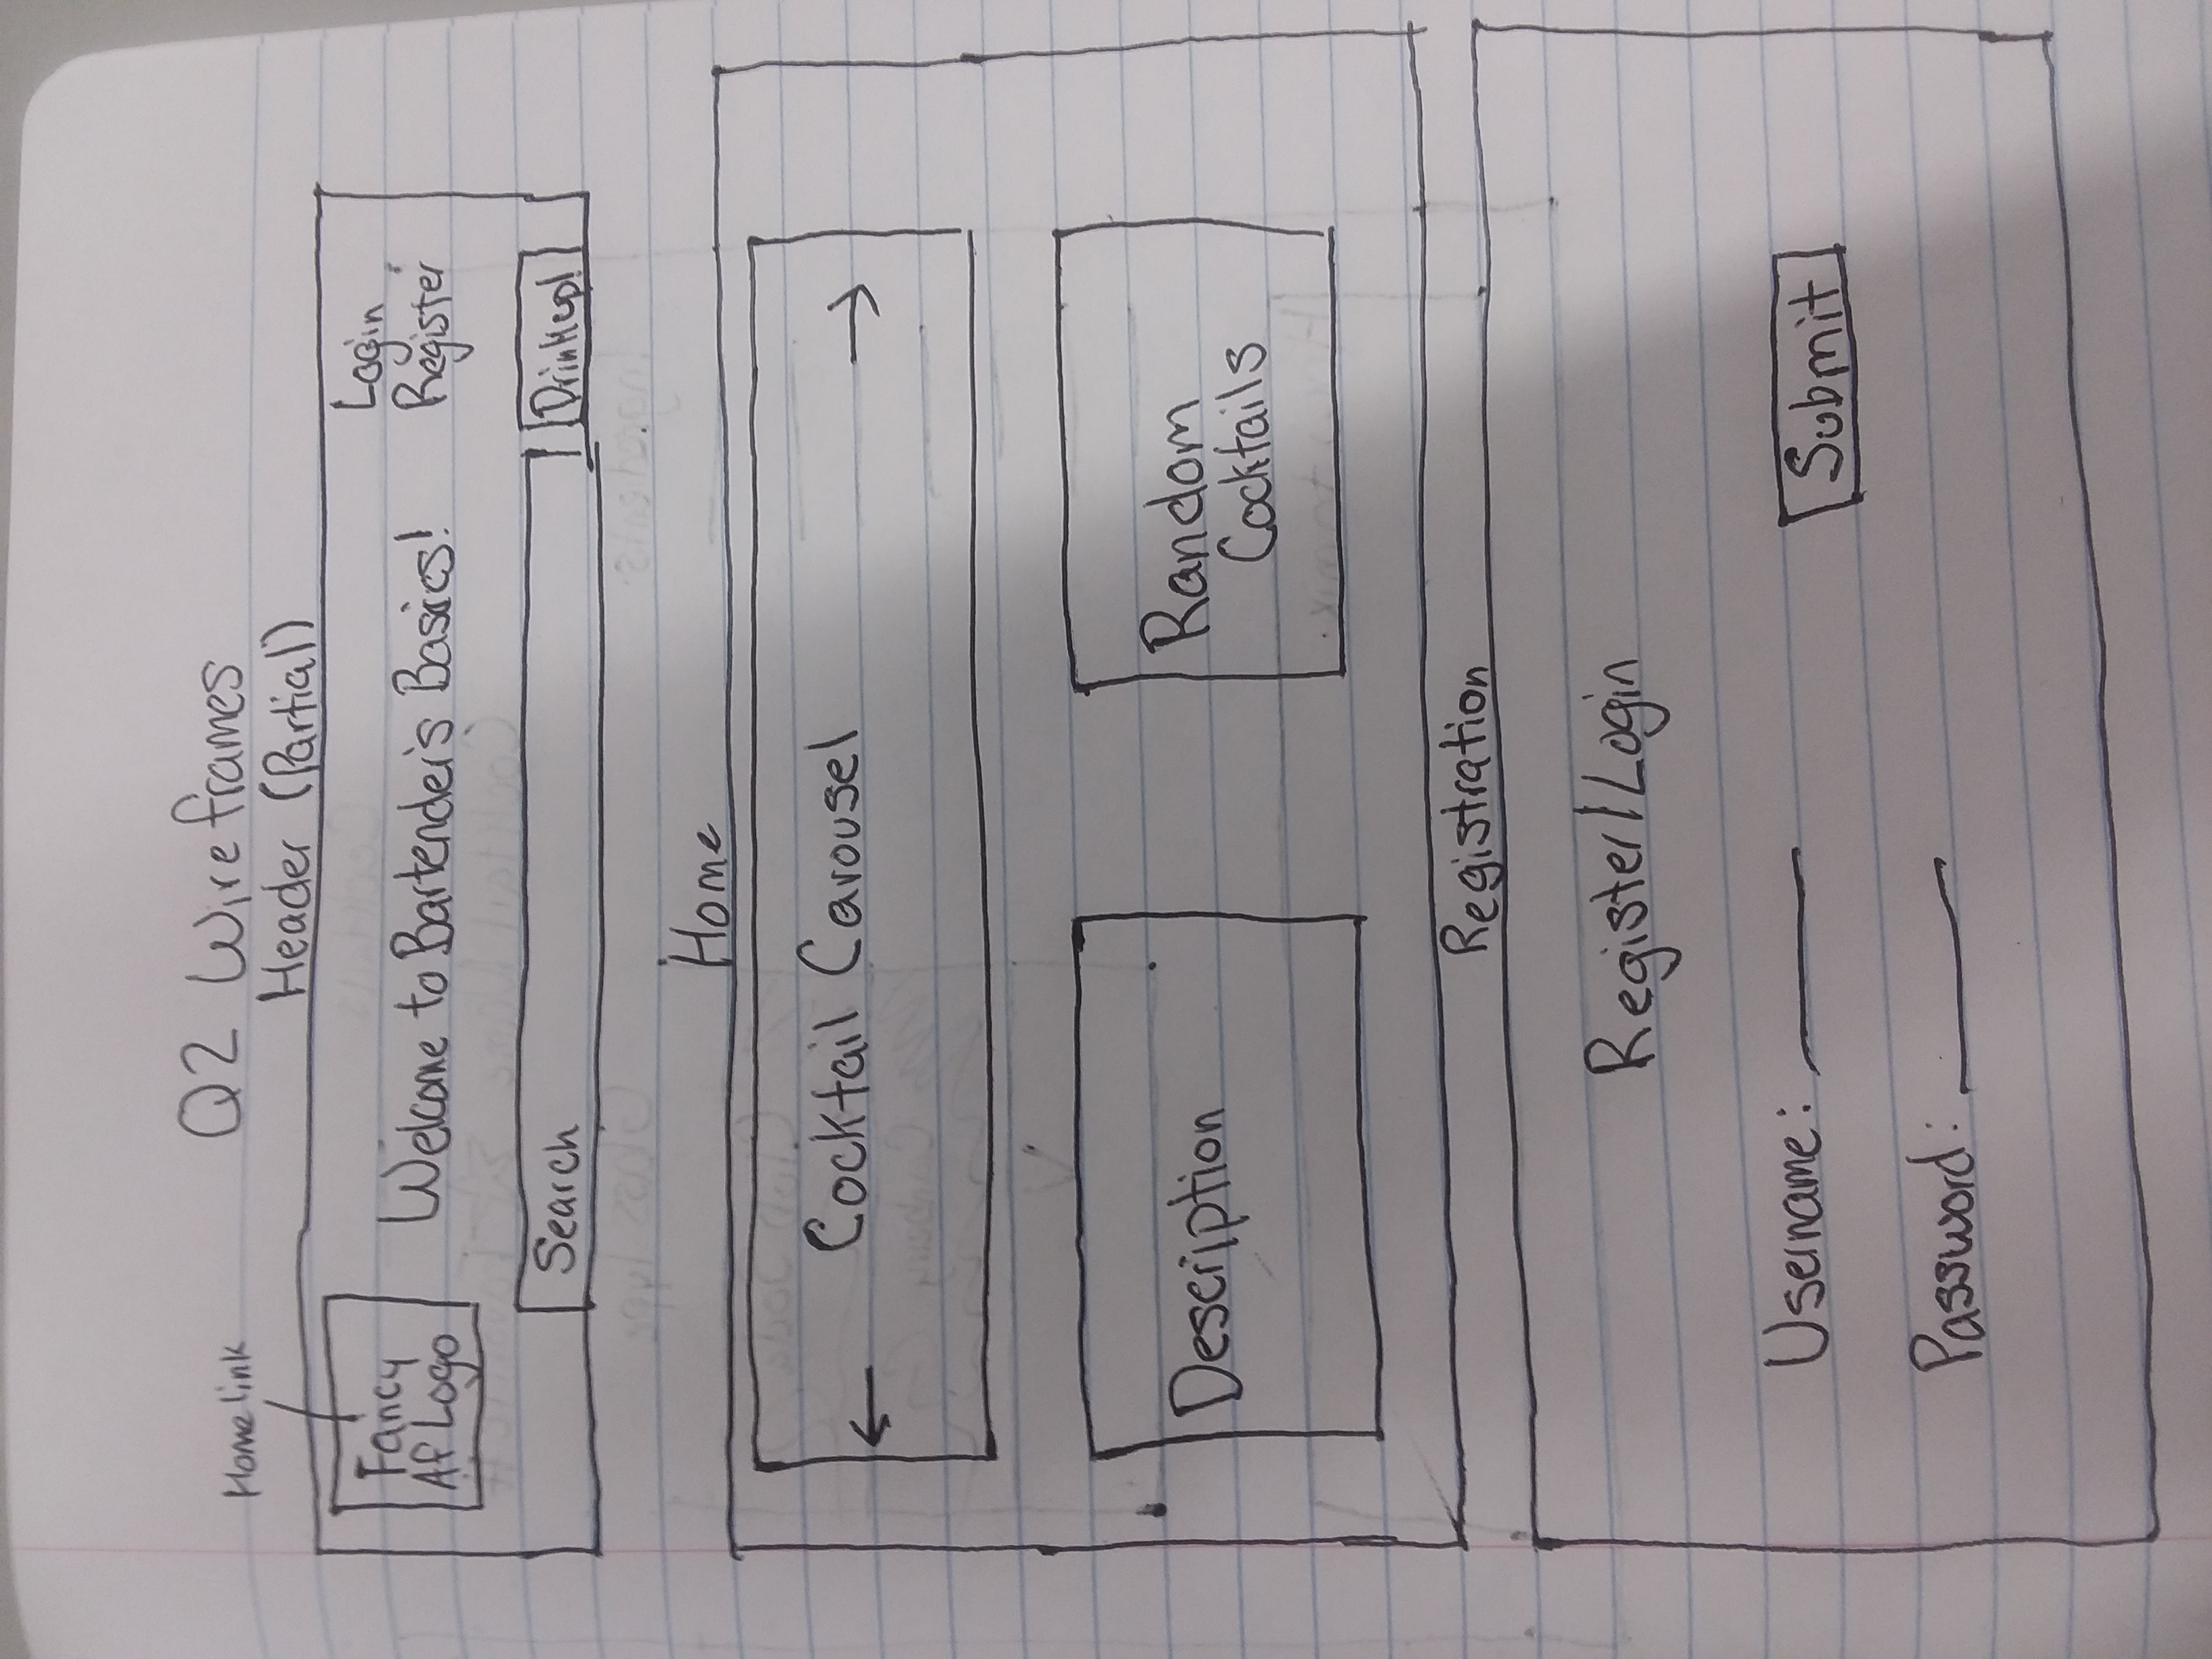 Q2 Wireframes
Home link
Header (Partial)
Fancy
Af Logo
Welcome to Bartender's Basics!
Login
Register
Search
Drink up!
Home
Cocktail Carousel
Description
Random
Cocktails
Registration
Register/Login
Username:
Submit
Password: